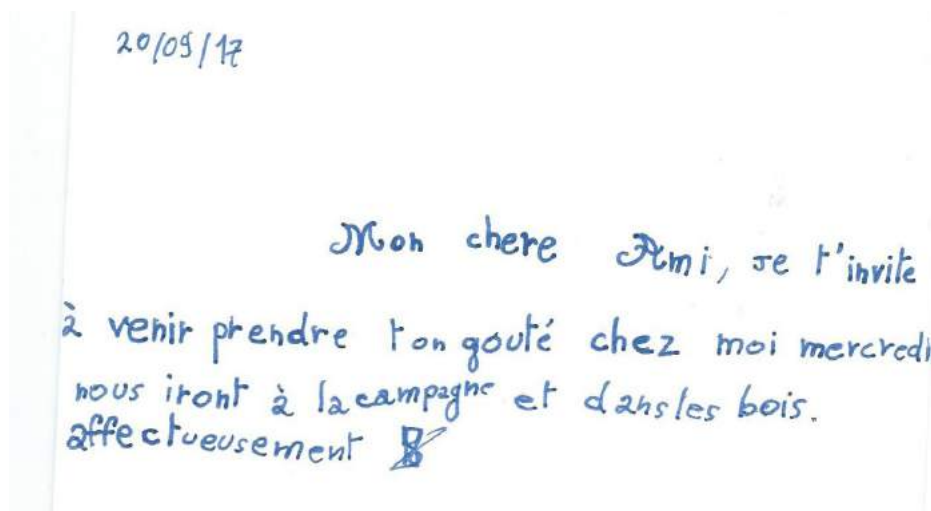 20/09/17
Mon chere Ami, je t'invite
à venir prendre ton gouté chez moi mercredi
nous iront à la campagne et dans les bois.
affectueusement